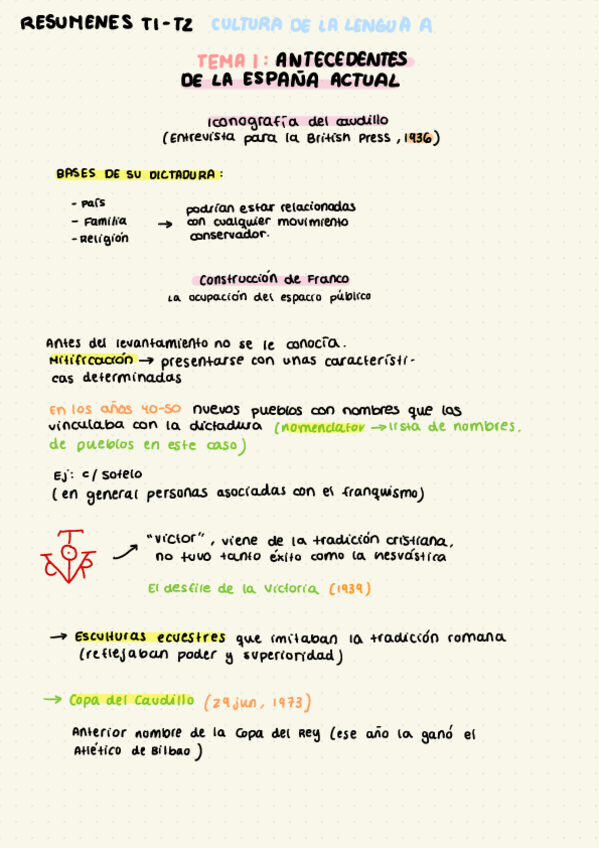 RESUMENES T1-T2 CULTURA DE LA LENGUA A
TEMA 1: ANTECEDENTES
DE LA ESPAÑA ACTUAL
Iconografía del caudillo
(Entrevista para la British Press, 1936)
BASES DE SU DICTADURA:
- País
- Familia
- Religión
→ podrían estar relacionadas
con cualquier movimiento
conservador.
Construcción de Franco
La ocupación del espacio público
Antes del levantamiento no se le conocía.
Mitificación → presentarse con unas característi-
cas determinadas
En los años 40-50 nuevos pueblos con nombres que los
vinculaba con la dictadura (nomenclator → lista de nombres,
de pueblos en este caso)
Ej: c/ Sotelo
(en general personas asociadas con el franquismo)
"Victor", viene de la tradición cristiana,
no tuvo tanto éxito como la nesvástica
El desfile de la Victoria (1939)
→ Esculturas ecuestres que imitaban la tradición romana
(reflejaban poder y superioridad)
→ Copa del Caudillo (29 jun, 1973)
Anterior nombre de la Copa del Rey (ese año la ganó el
Atlético de Bilbao)